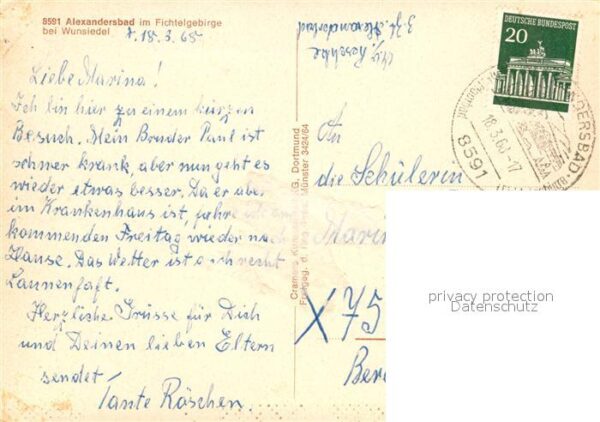 8591 Alexandersbad im Fichtelgebirge
bei Wunsiedel
18.3.65
Liebe Marina!
Ich bin hier zu einem kurzen
Besuch. Mein Bruder Paul ist
schwer krank, aber nun geht es
wieder etwas besser. Da er aber
im Krankenhaus ist, fahre ich am
kommenden Freitag wieder nach
Hause. Das Wetter ist auch recht
Launenhaft.
Herzliche Grüsse für Dich
und Deinen lieben Eltern
sendet
Tante Röschen.
Cramers
G. Dortmund
Freigeg. d.
Münster 3424/64
Alexandersbad
DEUTSCHE BUNDESPOST
20
DERSBAD
18.3.6
-17
8591
An
die Schülerin
Marin
X 75
Ber
privacy protection
Datenschutz